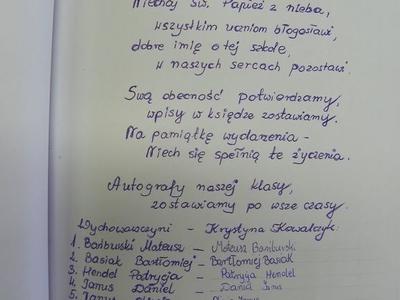 Niechaj Św. Papież z nieba,
wszystkim uczniom błogosławi,
dobre imię o tej szkole,
w naszych sercach pozostawi.
Swą obecność potwierdzamy,
wpisy w księdze zostawiamy.
Na pamiątkę wydarzenia -
Niech się spełnią te życzenia.
Autografy naszej klasy,
zostawiamy po wsze czasy.
Wychowawczyni - Krystyna Kowalczyk:
1. Barburski Mateusz - Mateusz Barburski
2. Basiak Bartłomiej - Bartłomiej Basiak
3. Hendel Patrycja - Patrycja Hendel
4. Janus Daniel - Daniel Janus
5. Janus